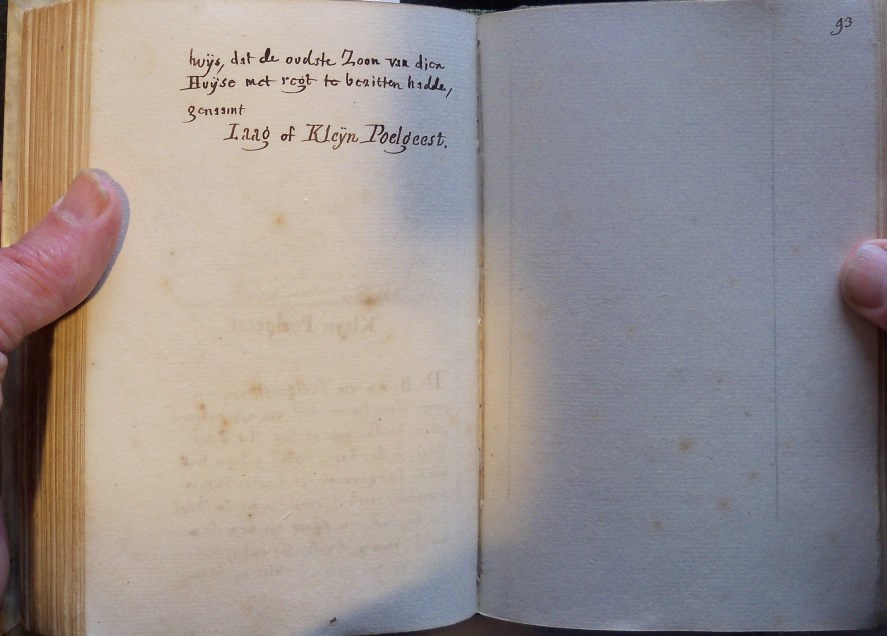 huÿs, dat de oudste Zoon van dien
Huÿse met regt te bezitten hadde,
genaamt
Laag of Kleÿn Poelgeest.
93